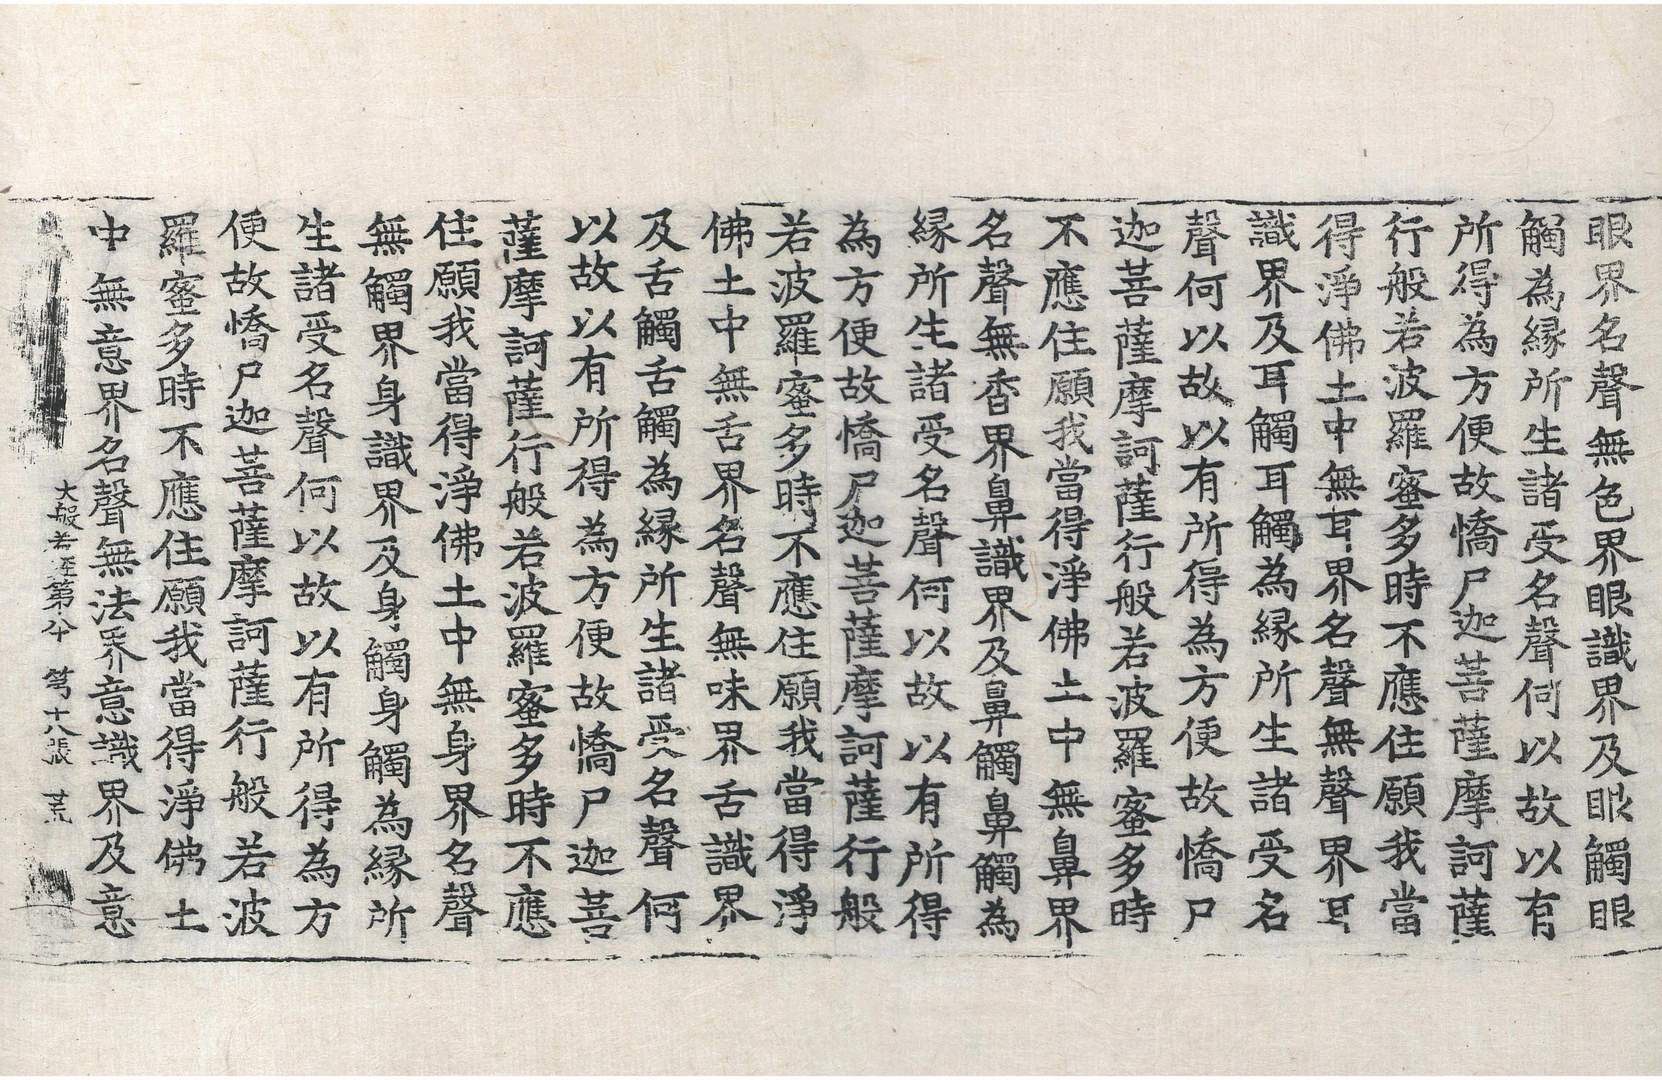 眼界名聲無色界眼識界及眼觸眼
觸為緣所生諸受名聲何以故以有
所得為方便故憍尸迦菩薩摩訶薩
行般若波羅蜜多時不應住願我當
得淨佛土中無耳界名聲無聲界耳
識界及耳觸耳觸為緣所生諸受名
聲何以故以有所得為方便故憍尸
迦菩薩摩訶薩行般若波羅蜜多時
不應住願我當得淨佛土中無鼻界
名聲無香界鼻識界及鼻觸鼻觸為
緣所生諸受名聲何以故以有所得
為方便故憍尸迦菩薩摩訶薩行般
若波羅蜜多時不應住願我當得淨
佛土中無舌界名聲無味界舌識界
及舌觸舌觸為緣所生諸受名聲何
以故以有所得為方便故憍尸迦菩
薩摩訶薩行般若波羅蜜多時不應
住願我當得淨佛土中無身界名聲
無觸界身識界及身觸身觸為緣所
生諸受名聲何以故以有所得為方
便故憍尸迦菩薩摩訶薩行般若波
羅蜜多時不應住願我當得淨佛土
中無意界名聲無法界意識界及意
大般若經第八十 第十八張 荒